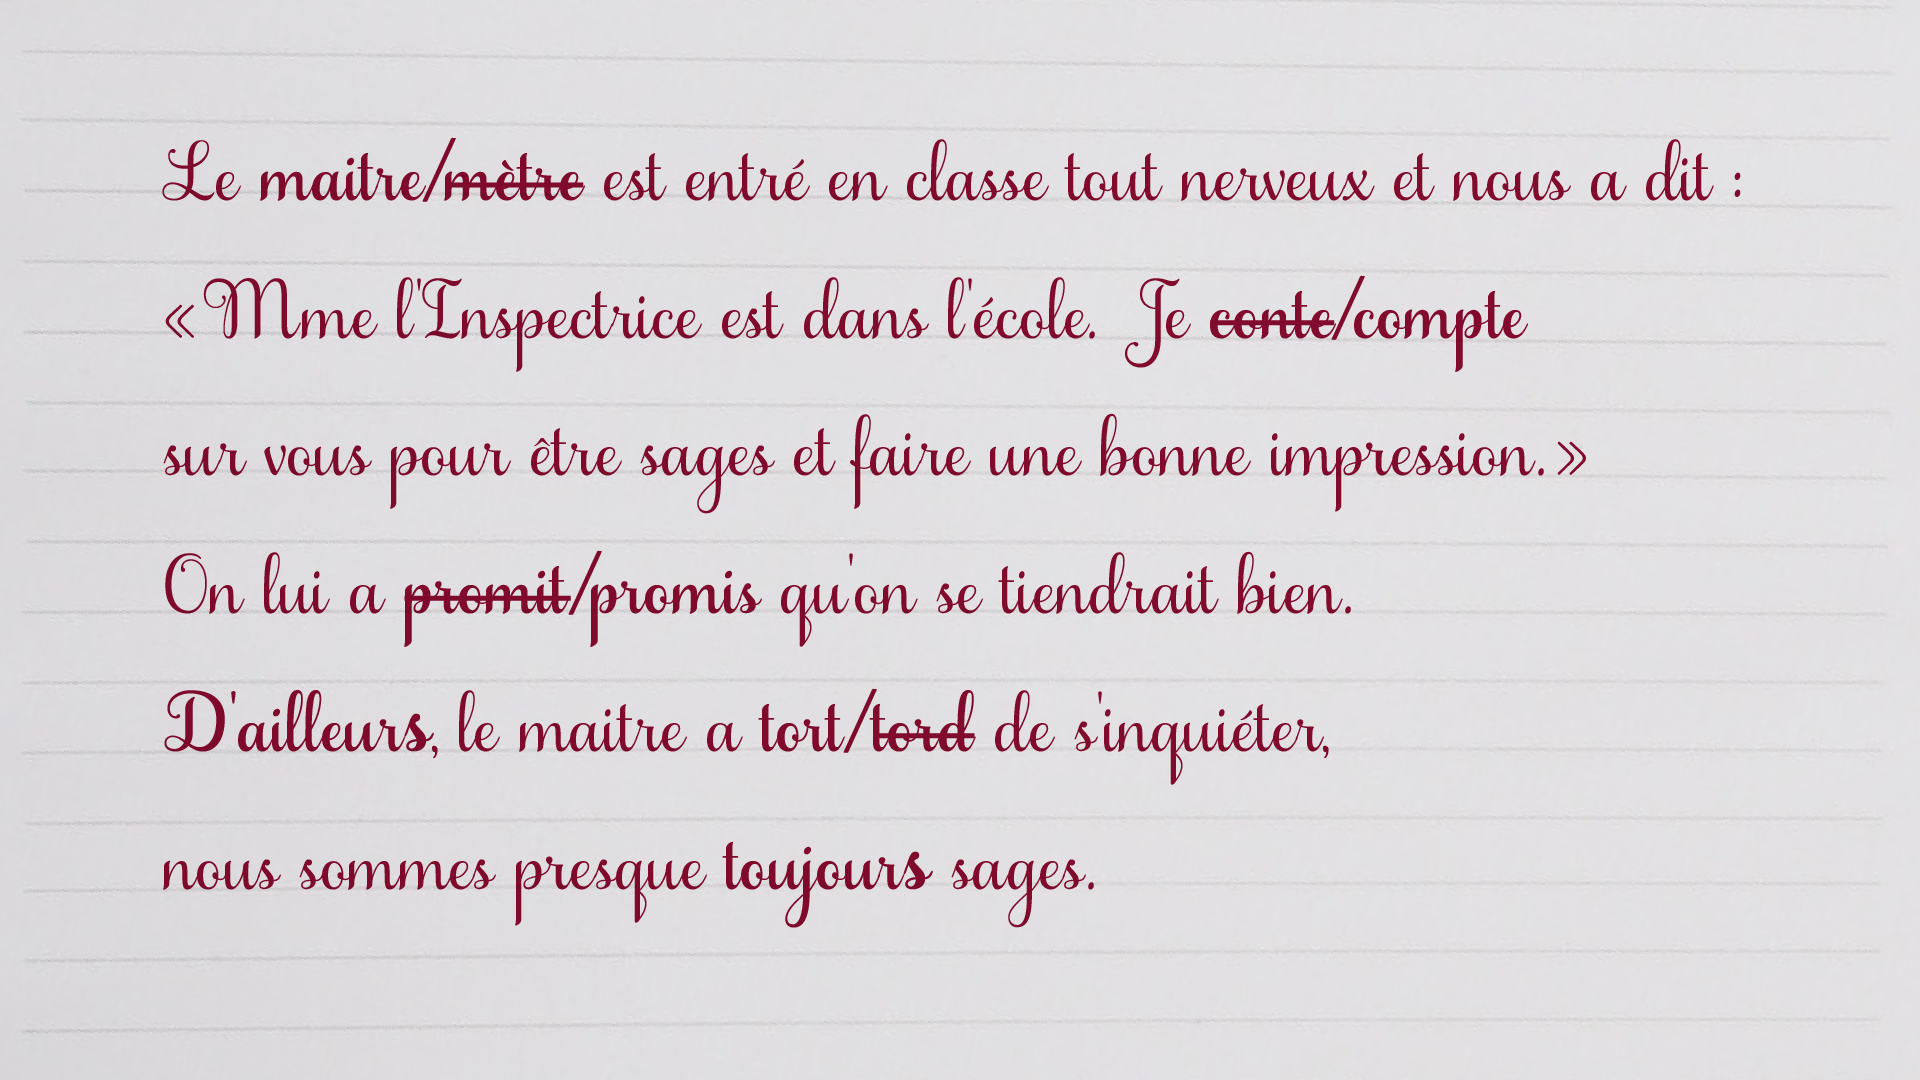 Le maitre/mètre est entré en classe tout nerveux et nous a dit :
«Mme l'Inspectrice est dans l'école. Je conte/compte
sur vous pour être sages et faire une bonne impression.»
On lui a promit/promis qu'on se tiendrait bien.
D'ailleurs, le maitre a tort/tord de s'inquiéter,
nous sommes presque toujours sages.